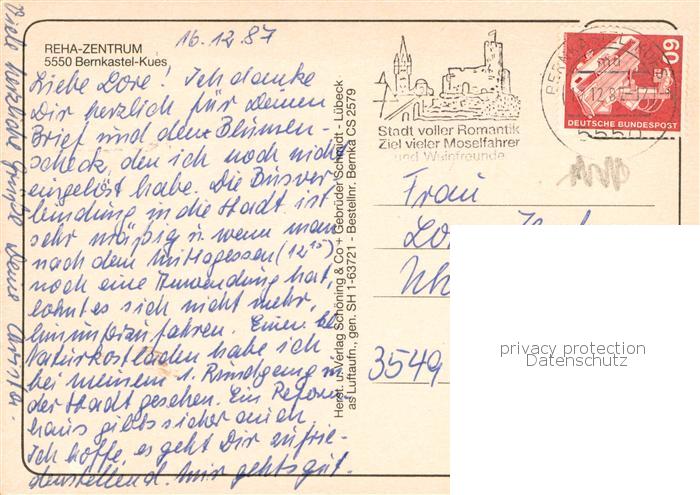 REHA-ZENTRUM
5550 Bernkastel-Kues
16.12.87
Liebe Lore! Ich danke
Dir herzlich für Deinen
Brief und den Blumen-
scheck, den ich noch nicht
eingelöst habe. Die Busver
bindung in die Stadt ist
sehr mäßig u. wenn man
nach dem Mittagessen (12 15)
noch eine Anwendung hat,
lohnt es sich nicht mehr,
hineinzufahren. Einen
Naturkostladen habe ich
bei meinem 1. Rundgang in
der Stadt gesehen. Ein Reform
haus gibts sicher auch.
Ich hoffe, es geht Dir zufrie-
denstellend. Mir gehts gut.
Viele herzliche Grüße Deine
Herst. u. Verlag Schöning & Co + Gebrüder Schmidt - Lübeck
als Luftaufn., gen. SH 1-63721 - Bestellnr. Bernka CS 2579
Stadt voller Romantik
Ziel vieler Moselfahrer
und Weinfreunde
BERNKASTEL-KUES
5550
60
DEUTSCHE BUNDESPOST
Frau
3549
privacy protection
Datenschutz